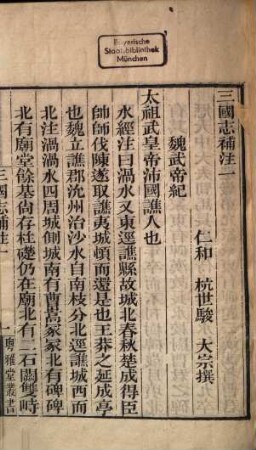 Bayerische
Staatsbibliothek
München
三國志補注一
仁和 杭世駿 大宗撰
魏武帝紀
太祖武皇帝沛國譙人也
水經注曰渦水又東逕譙縣故城北春秋楚成得臣
帥師伐陳遂取譙夷城頓而還是也王莽之延成亭
也魏立譙郡沇州治沙水自南枝分北逕譙城西而
北注渦渦水四周城側城南有曹嵩冢冢北有碑碑
北有廟堂餘基尚存柱礎仍在廟北有二石闕雙峙
三國志補注一
一
粵雅堂叢書